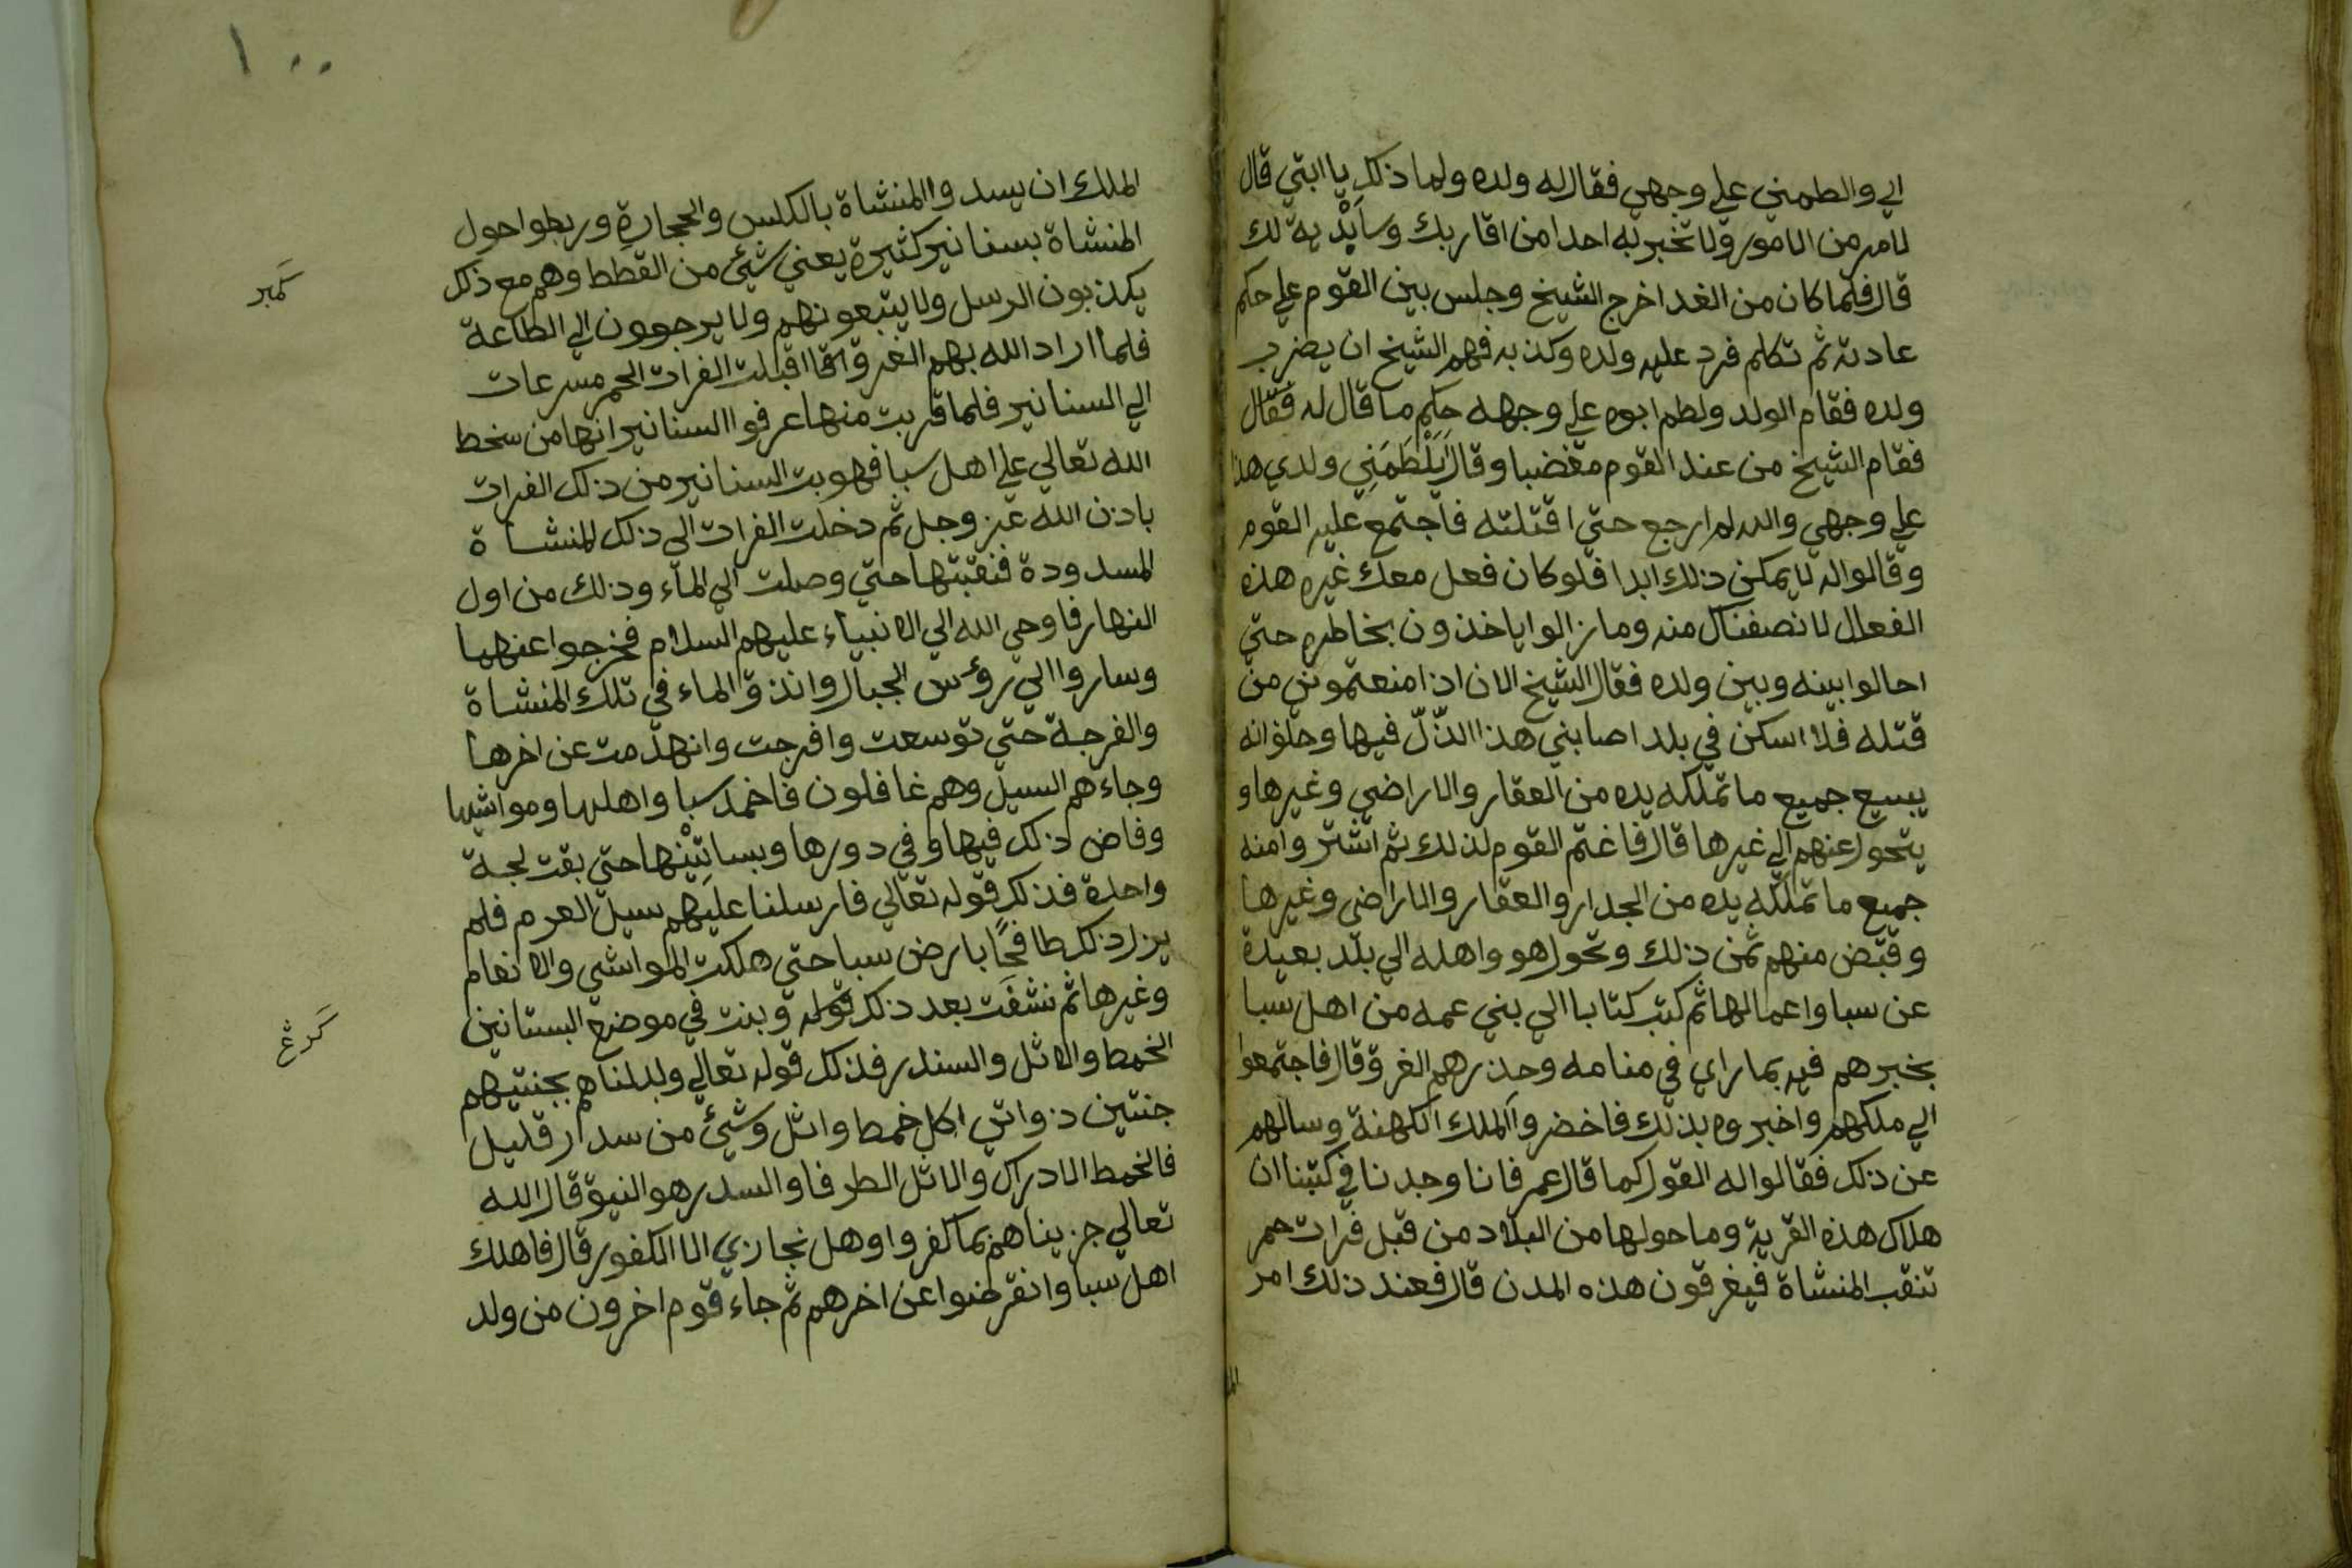 الي والطمني علي وجهي فقال له ولده ولما ذلك يا ابتي قال
لامر من الامور ولا تخبر به احدا من اقاربك وسأبديه لك
قال فلما كان من الغد اخرج الشيخ وجلس بين القوم علي حكم
عادته ثم تكلم فرد عليه ولده وكذبه فهم الشيخ ان يضرب
ولده فقام الولد ولطم ابوه علي وجهه حكم ما قال له فقال
فقام الشيخ من عند القوم مغضبا وقال أيَلْطَمَنِي ولدي هذا
علي وجهي والله لم ارجع حتي اقتلته فاجتمع عليه القوم
وقالوا له لا يمكن ذلك ابدا فلو كان فعل معك غيره هذه
الفعال لانصفناك منه وما زالوا ياخذون بخاطره حتي
احالوا بينه وبين ولده فقال الشيخ الان اذا منعتموني من
قتله فلا اسكن في بلد اصابني هذا الذّلّ فيها وحلف انه
يبيع جميع ما تملكه يده من العقار والاراضي وغيرها و
يتحول عنهم الي غيرها قال فاغتم القوم لذلك ثم اشتروا منه
جميع ما تملكه يده من الجدار والعقار والاراضي وغيرها
وقبض منهم ثمن ذلك وتحول هو واهله الي بلد بعيدة
عن سبا واعمالها ثم كتب كتابا الي بني عمه من اهل سبا
يخبرهم فيه بما راي في منامه وحذرهم الغرق قال فاجتمعوا
الي ملكهم واخبروه بذلك فاحضروا الملك الكهنة وسالهم
عن ذلك فقالوا له القول كما قال عمر فانا وجدنا في كتبنا ان
هلاك هذه القرية وما حولها من البلاد من قبل فرات حمر
تنقب المنشاة فيغرقون هذه المدن قال فعند ذلك امر
الم
١٠٠
الملك ان يسدوا المنشاة بالكلس والحجارة وربطوا حول
المنشاة بسنانير كثيرة يعني شيئ من القطط وهم مع ذلك
يكذبون الرسل ولا يتبعونهم ولا يرجعون الي الطاعة
فلما اراد الله بهم الغرق اقبلت الفرات الحمر مسرعات
الي السنانير فلما قربت منها عرفوا السنانير انها من سخط
الله تعالي علي اهل سبا فهوبت السنانير من ذلك الفرات
باذن الله عز وجل ثم دخلت الفرات الي ذلك المنشاة
المسدودة فنقبتها حتي وصلت الي الماء وذلك من اول
النهار فاوحي الله الي الانبياء عليهم السلام فخرجوا عنهما
وساروا الي رؤس الجبال وانذق الماء في تلك المنشاة
والفرجة حتي توسعت وافرجت وانهدمت عن اخرها
وجاءهم السيل وهم غافلون فاخمد سبا واهلها ومواشيها
وفاض ذلك فيها وفي دورها وبساتينها حتي بقت لجة
واحدة فذلك قوله تعالي فارسلنا عليهم سيل العرم فلم
يزل ذلك طافحًا بارض سبا حتي هلكت المواشي والانعام
وغيرها ثم نشفت بعد ذلك قوله وبنت في موضع البستانين
الخمط والاثل والسندر فذلك قوله تعالي وبدلناهم بجنتيهم
جنتين ذواتي اكل خمط واثل وشيئ من سدر قليل
فالخمط الادراك والاثل الطرفا والسدر هو النبق قال الله
تعالي جزيناهم بما كفروا وهل نجازي الا الكفور قال فاهلك
اهل سبا وانقرضوا عن اخرهم ثم جاء قوم اخرون من ولد